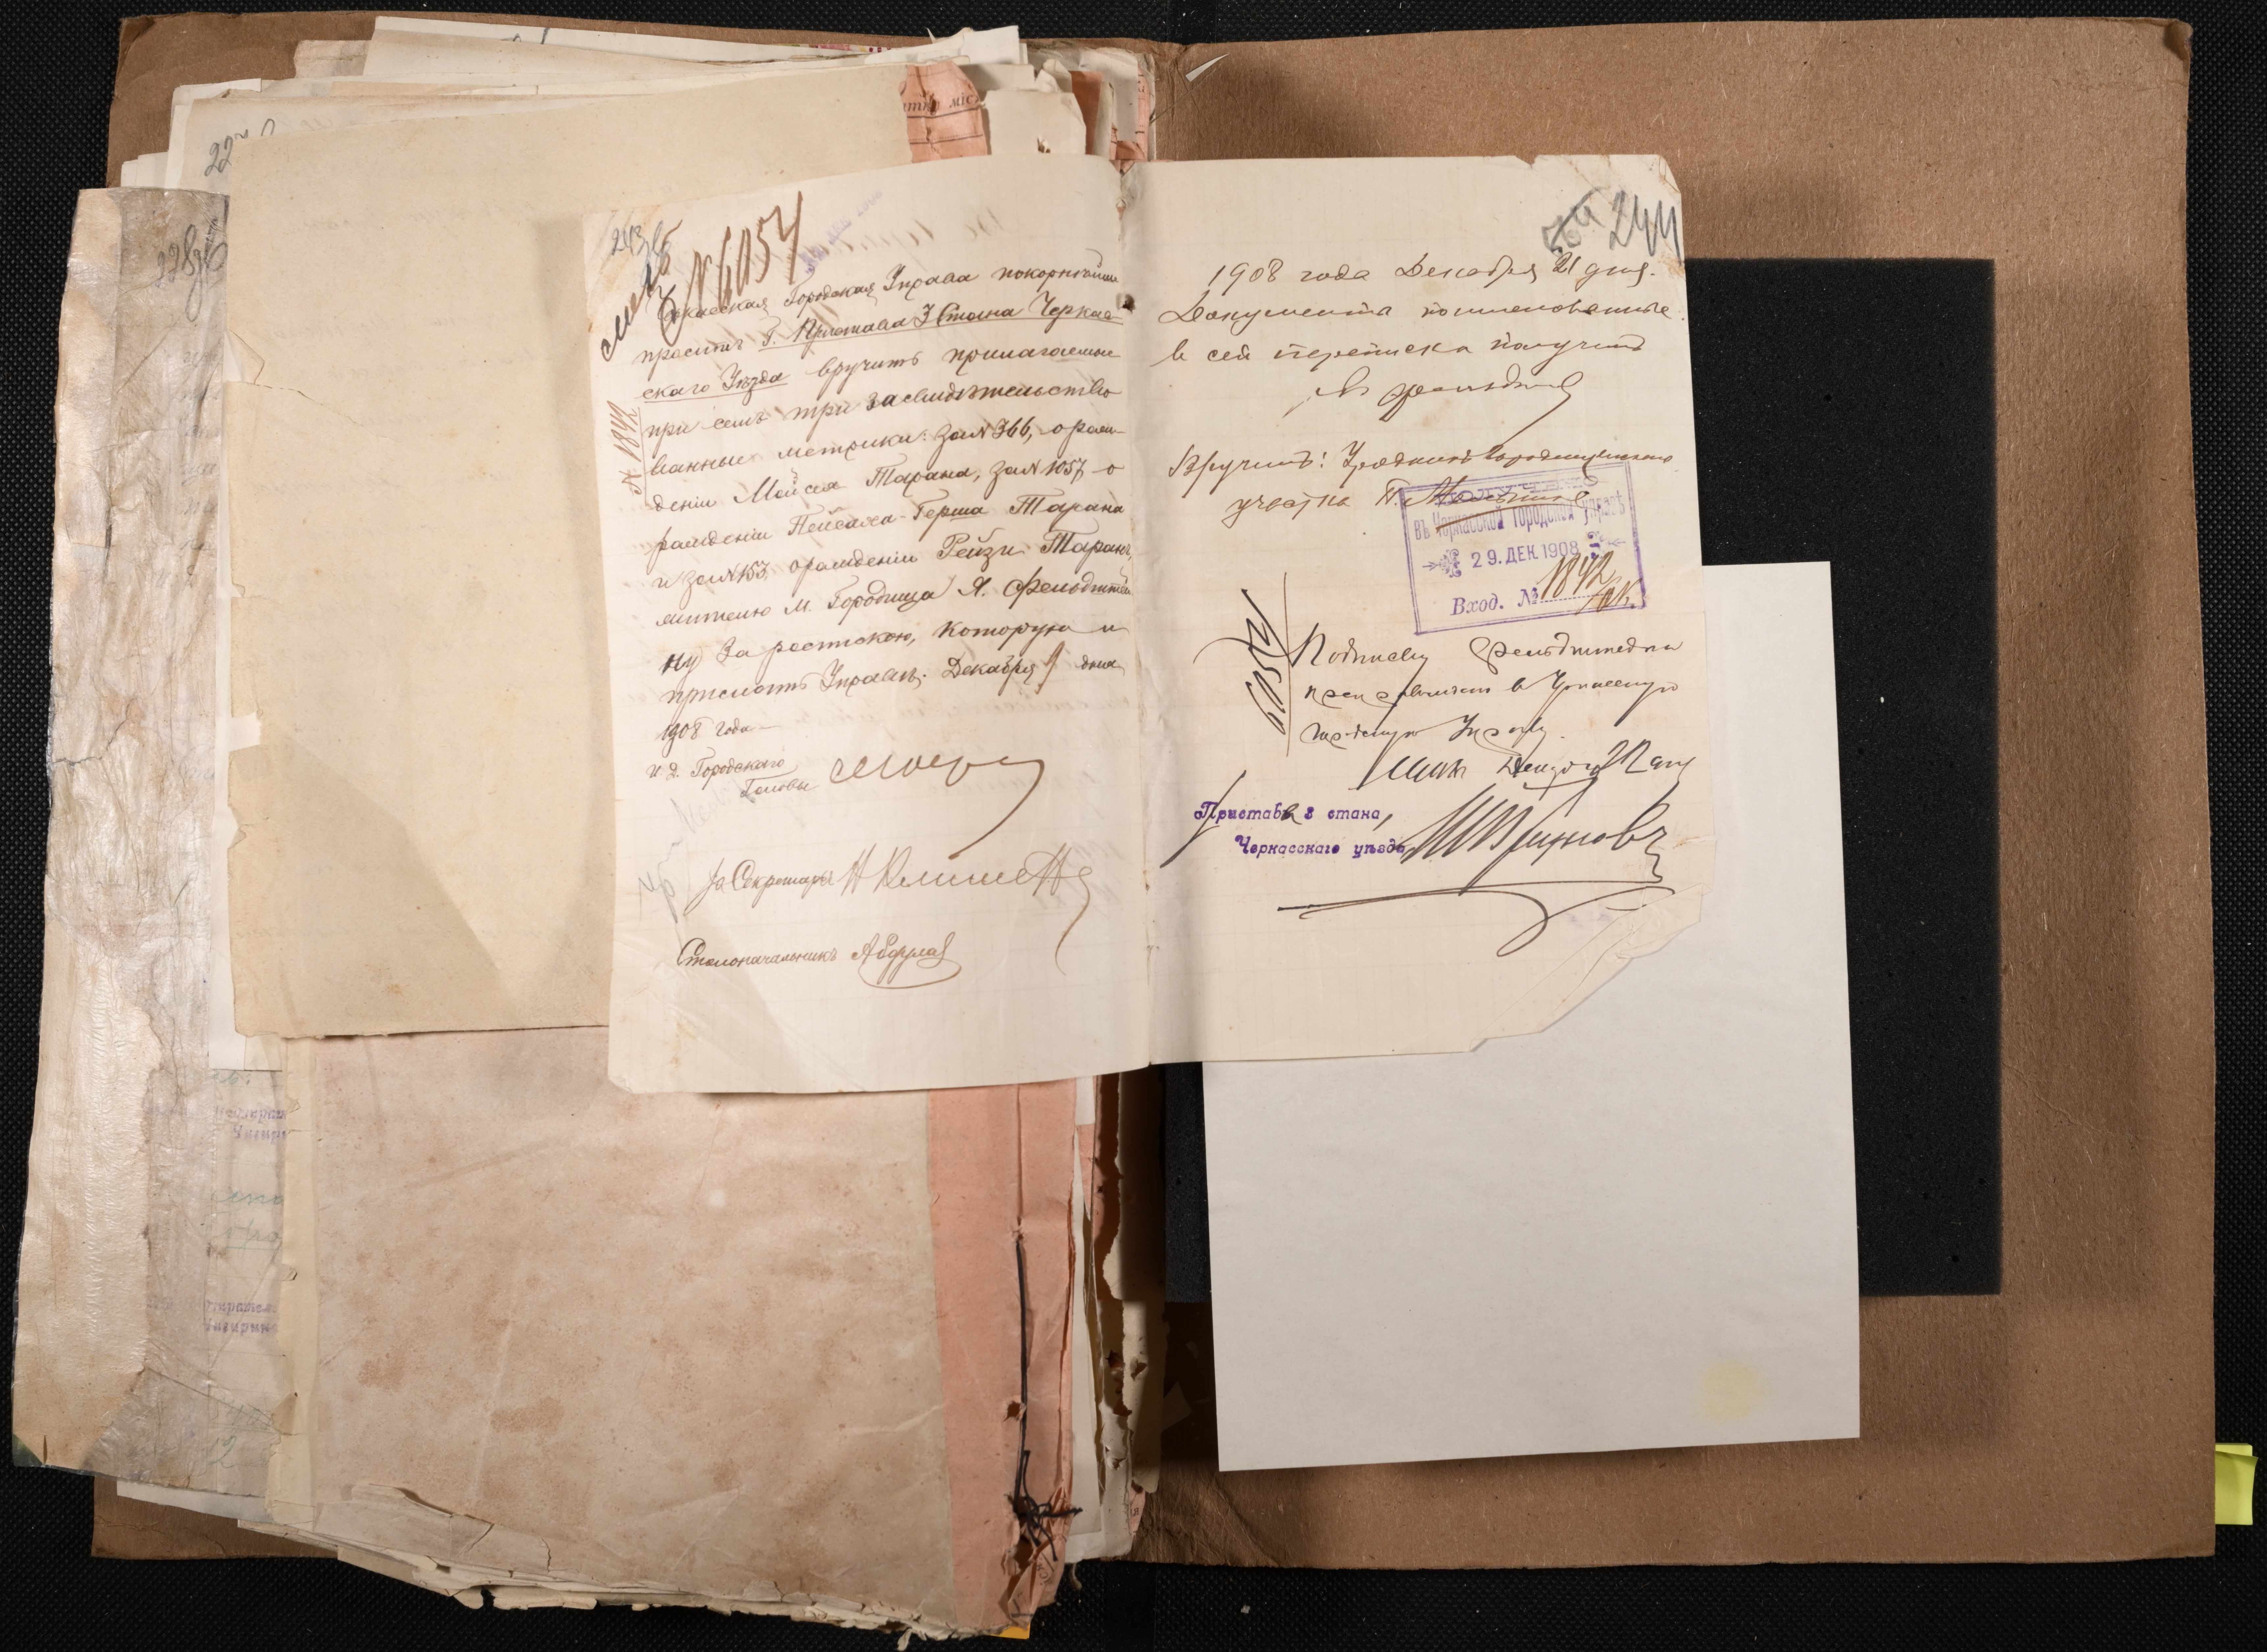 243 об
№ 6057
Черкасская Городская Управа покорнѣйше
проситъ Г. Пристава 3 Стана Черкас-
скаго Уѣзда вручить прилагаемые
при семъ три засвидѣтельство
ванные метрики: за № 366, о рож-
деніи Мойсея Тарана, за № 1057 о
рожденіи Пейсаха-Герша Тарана
и за № 153, о рожденіи Рейзи Таранъ,
жителю м. Городища Я. Фельдштей
ну за роспискою, которую и
прислать Управѣ. Декабря 9 дня
1908 года
И. д. Городского
Головы
За Секретаря
Столоначальникъ
№ 1842
244
1908 года Декабря 21 дня.
Документы поименованные
в сей переписке получилъ
Вручилъ: Урядникъ Городищенскаго
участка П.
въ Черкасской Городской Управѣ
29. ДЕК. 1908
Вход. № 1842
6057
Подписку Фельдштейна
препровождаю в Черкасскую
Городскую Управу.
Приставъ 3 стана,
Черкасскаго уѣзда
22
228